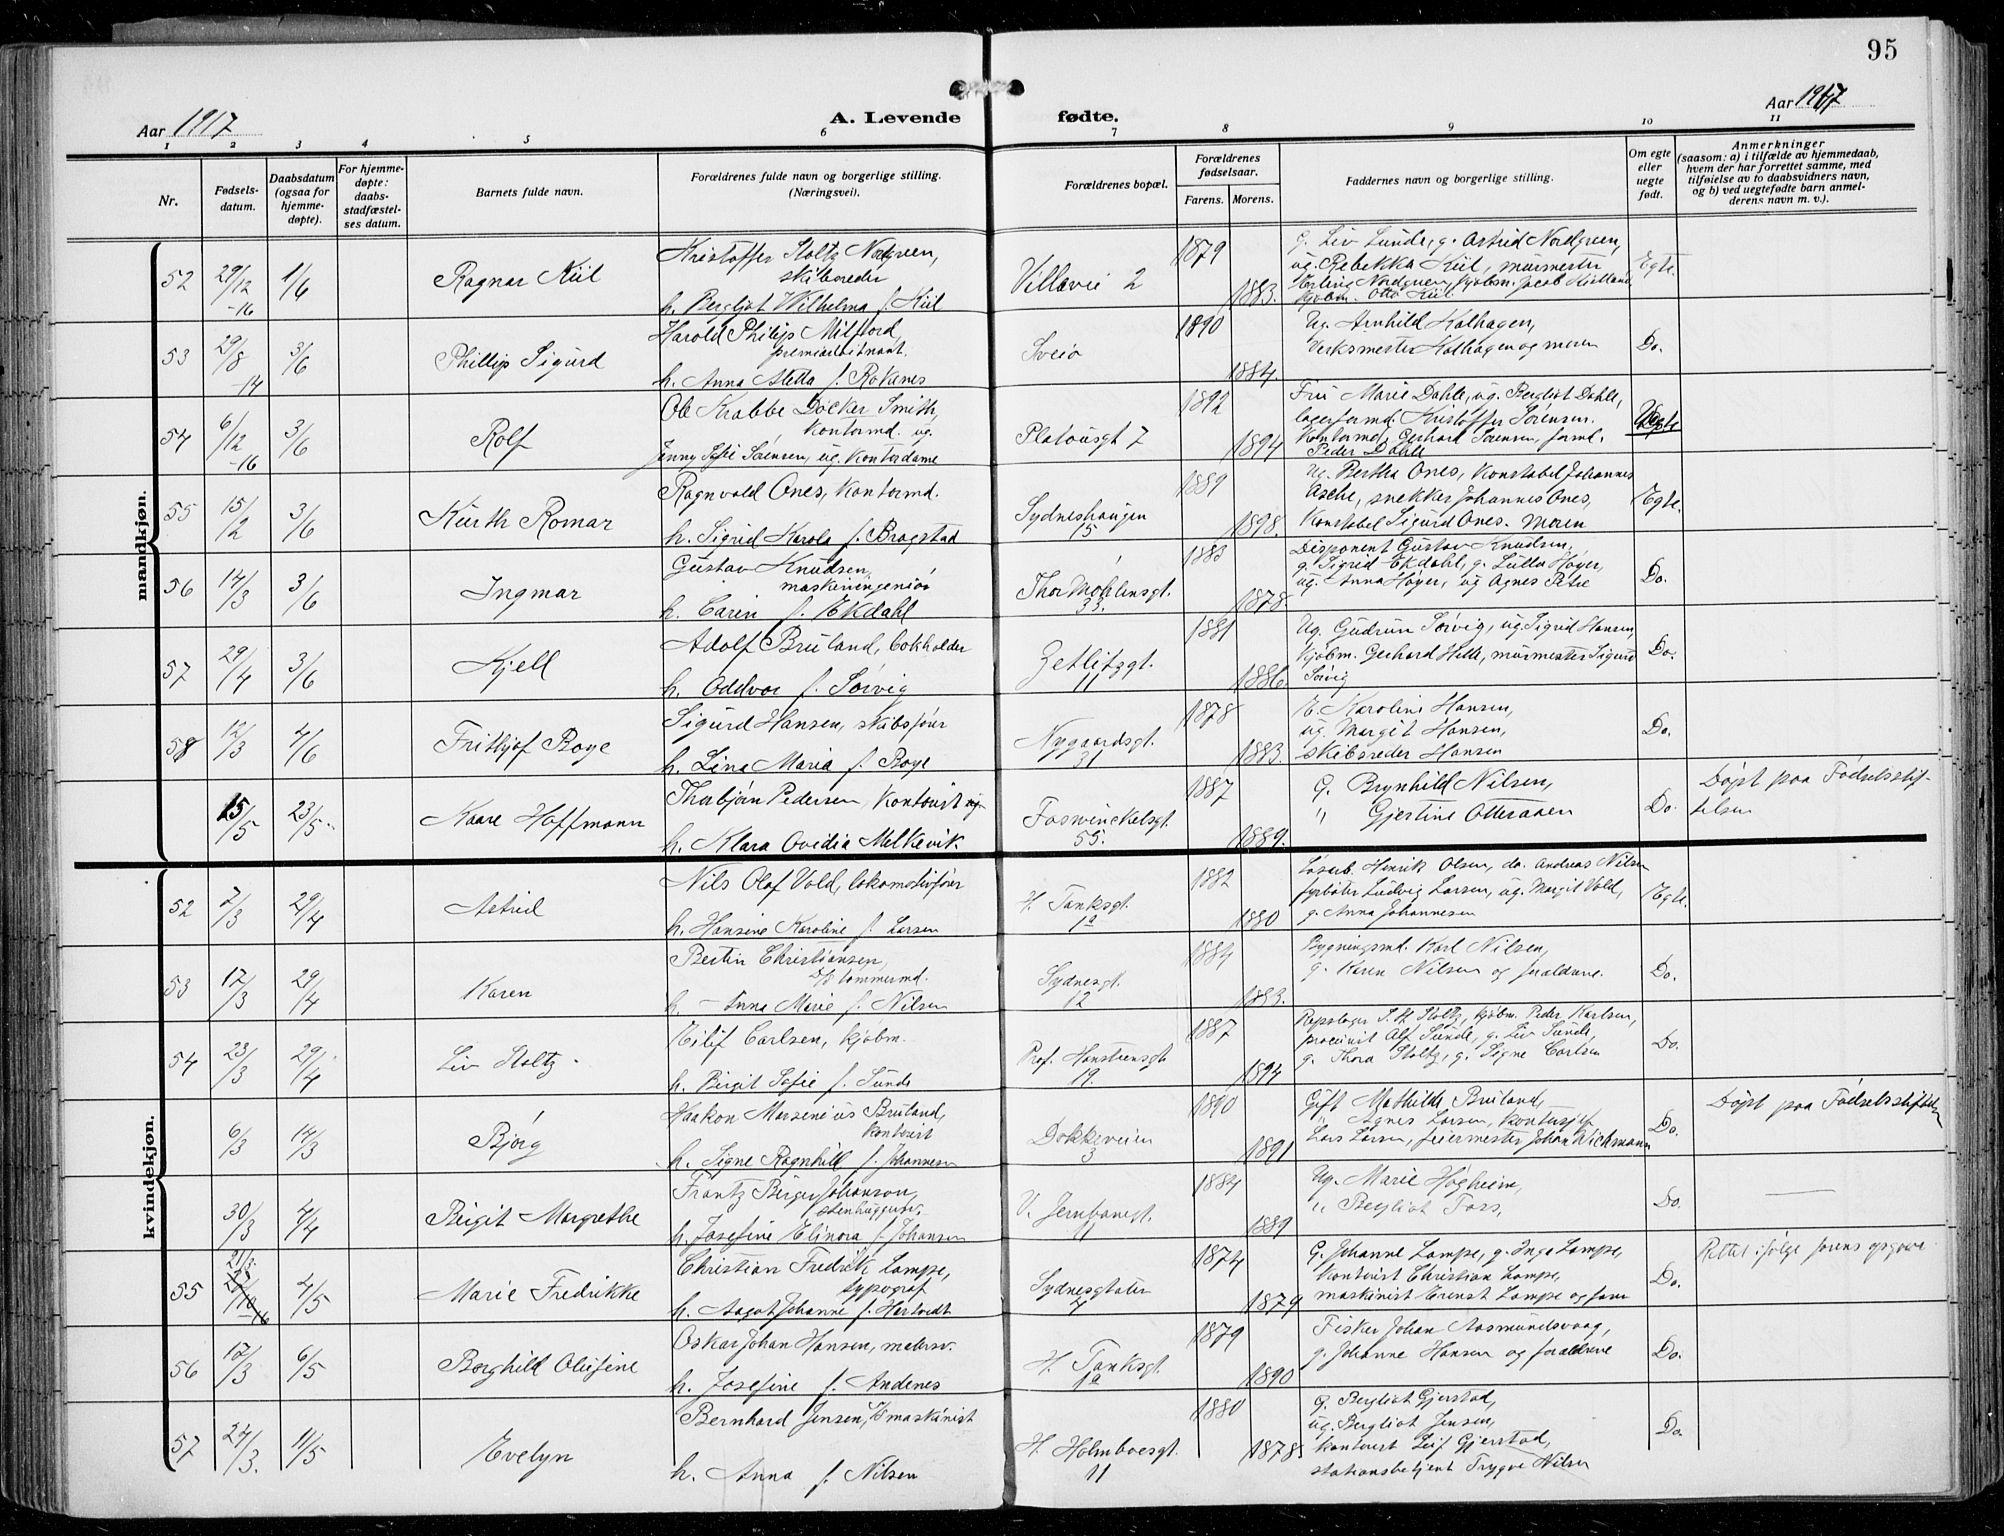 95
Aar 1917
A. Levende
fødte.
Aar 1917
1 2 3 4 5 6 7 8 9 10 11
Nr.
Fødsels-
datum.
Daabsdatum
(ogsaa for
hjemme-
døpte).
For hjemme-
døpte:
daabs-
stadfæstel-
ses datum.
Barnets fulde navn.
Forældrenes fulde navn og borgerlige stilling.
(Næringsvei).
Forældrenes bopæl.
Forældrenes
fødselsaar.
Farens. Morens.
Faddernes navn og borgerlige stilling.
Om egte
eller
uegte
født.
Anmerkninger
(saasom: a) i tilfælde av hjemmedaab,
hvem der har forrettet samme, med
tilføielse av to daabsvidners navn,
og b) ved uegtefødte barn anmel-
derens navn m. v.).
mandkjøn.
52 29/12 -16 1/6 Ragnar Kiil
Kristoffer Stoltz Nordgreen,
skibsreder
h. Bergliot Wilhelma f. Kiil
Villavei 2
1879 1883.
g. Liv Sunde, g. Astrid Nordgreen,
ug. Rebekka Kiil, murmester
Erling Nordgreen, kjøbm. Jacob Kielland
kjøbm. Otto Kiil
Egte.
53 29/8 -14 3/6 Phillip Sigurd
Harold Philip Mitford,
h. Anna Aletta f. Rokenes
Sveio
1890 1884.
Ug. Arnhild Kolhagen,
Verksmester Kolhagen og moren
Do.
54 6/12 -16 3/6 Rolf
Ole Krabbe Döcker Smith,
kontormd. ug.
Jenny Sofie Sörensen, ug. kontordame
Platousgt 7
1892 1894
Fru Marie Dahle, ug. Bergliot Dahle,
lagerformd. Kristoffer Sörensen.
Kontormd. Gerhard Sörensen, formd.
Peder Dahle
Uegte
55 15/2 3/6 Kurth Romar
Ragnvald Ones, kontormd.
h. Sigrid Karola f. Brogstad
Sydneshaugen
15
1889 1898.
Ug. Bertha Ones, Konstabel Johannes
Asche, snekker Johannes Ones,
Konstabel Sigurd Ones. Moren
Egte.
56 14/3 3/6 Ingmar
Gustav Knudsen,
maskiningeniör
h. Carin f. Ekdahl
Thor Möhlensgt.
33.
1883 1878.
Disponent Gustav Knudsen,
g. Sigrid Ekdahl, g. Lulla Höyer,
ug. Anna Höyer, ug Agnes Petre
Do.
57 29/4 3/6 Kjell
Adolf Bruland, bokholder
h. Oddvor f. Sörvig
Zetlitzgt.
11
1881 1886.
Ug. Gudrun Sörvig, ug. Sigrid Hansen,
Kjöbm. Gerhard Hille, murmester Sigurd
Sörvig
Do.
58 12/3 4/6 Frithjof Boye
Sigurd Hansen, skibsförer
h. Lina Maria f. Boye
Nygaardsgt.
31
1878 1883.
E. Karoline Hansen,
ug. Margit Hansen,
skibsreder Hansen
Do.
15/5 23/5 Kaare Hoffmann
Thorbjörn Pedersen, kontorist
h. Klara Ovidia Melkevik
Fosswinckelsgt.
55.
1887 1889.
G. Brynhild Nilsen,
" Gjertine Otteraaen
Do.
Döpt paa Födselsstif-
telsen
kvindekjøn.
52 7/3 29/4 Astrid
Nils Olaf Vold, lokomotivförer
h. Hansine Karoline f. Larsen
H. Tanksgt.
1a
1882 1880
Lösarb. Henrik Olsen, do. Andreas Nilsen
fyrböter Ludvig Larsen, ug. Margit Vold,
g. Anna Johannesen
Egte.
53 17/3 29/4 Karen
Bertin Christiansen,
D/S tömmermd.
h. – Anna Marie f. Nilsen
Sydnesgt.
12
1884 1883.
Bygningsmd. Karl Nilsen,
g. Karen Nilsen og forældrene.
Do.
54 23/3 29/4 Liv Stoltz
Eilif Carlsen, kjöbm.
h. Birgit Sofie f. Sunde
Prof. Hansteensgt
19.
1887 1894
Repslager S. H. Stoltz, kjöbm. Peder Karlsen,
Alf Sunde, g. Liv Sunde,
g. Thora Stoltz, g. Signe Carlsen
Do.
6/3 14/3 Björg
Haakon Marsenius Bruland,
kontorist
h. Signe Ragnhild f. Johannesen
Dokkeveien
3
1890 1891
Gift Mathilde Bruland,
" Agnes Larsen, kontorsjef
Lars Larsen, feiermester Johan Wichmann
Do.
Döpt paa Födselsstiftelsen
30/3 4/4 Birgit Margrethe
Frantz Birger Johanson,
stenhugger,
h. Josefine Elinora f. Johansen
V. Jernbanegt.
11
1884 1889
Ug. Marie Högheim,
" Bergliot Fors,
Do.
55 21/3 4/5 Marie Fredrikke
Christian Fredrik Lampe,
typograf
h. Aagot Johanne f. Hertvedt
Sydnesgtaten
4
1874 1879
G. Johanne Lampe, g. Inga Lampe,
kontorist Christian Lampe,
maskinist Ernst Lampe og faren
Do.
Rettet ifölge farens opgave.
56 17/3 6/5 Borghild Olufine
Oskar Johan Hansen, malersv.
h. Josefine f. Andenes
H. Tanksgt.
1a
1879 1890
Fisker Johan Aasmundsvaag,
g. Johanne Hansen og forældrene
Do.
57 24/3. 11/5 Evelyn
Bernhard Jensen, maskinist
h. Anna f. Nilsen
H. Holmboesgt.
11
1880 1878.
G. Bergliot Gjerstad,
ug. Bergliot Jensen,
kontorist Leif Gjerstad,
stationsbetjent Trygve Nilsen
Do.